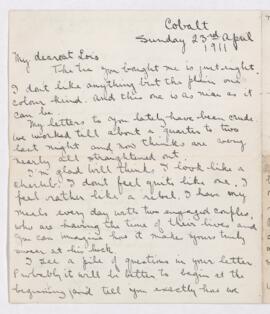 Cobalt
Sunday 23rd April
1911
My dearest Lois
The tie you bought me is just right.
I don't like anything but the plain one
colour kind. And this one is as nice as it
can be.
My letters to you lately have been crude.
We worked till about a quarter to two
last night and now things are very
nearly all straightened out.
I'm glad Will thinks I look like a
cherub. I don't feel quite like one. I
feel rather like a rebel. I have my
meals every day with two engaged couples,
who are having the time of their lives and
you can imagine how it makes yours truly
swear at his luck.
I see a pile of questions in your letter
Probably it will be better to begin at the
beginning and tell you exactly how we